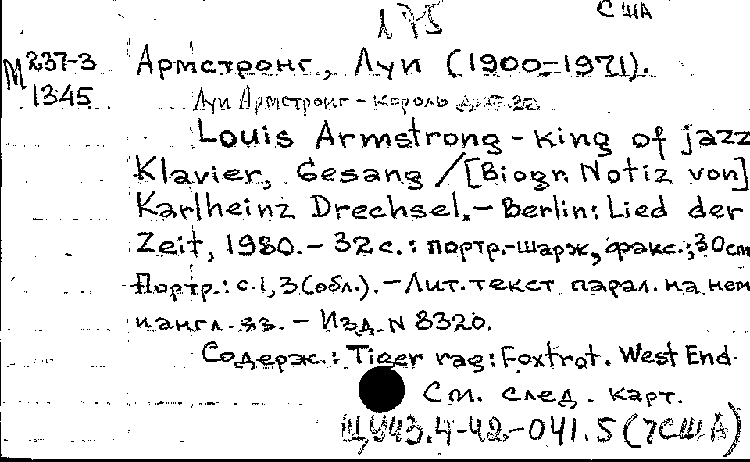 175
США
М 237-3
1345
Армстронг, Луи (1900-1971).
Луи Армстронг - король джаза
Louis Armstrong - king of jazz
Klavier, Gesang / [Biogr. Notiz von]
Karlheinz Drechsel. - Berlin: Lied der
Zeit, 1980. - 32 с.: портр.-шарж, факс.; 30 cm
Портр.: с. 1, 3 (обл.). - Лит. текст парал. на нем
и англ. яз. - Изд. N 8320.
Содерж.: Tiger rag: Foxtrot. West End
См. след. карт.
Щ943.4-42-041.5(7США)